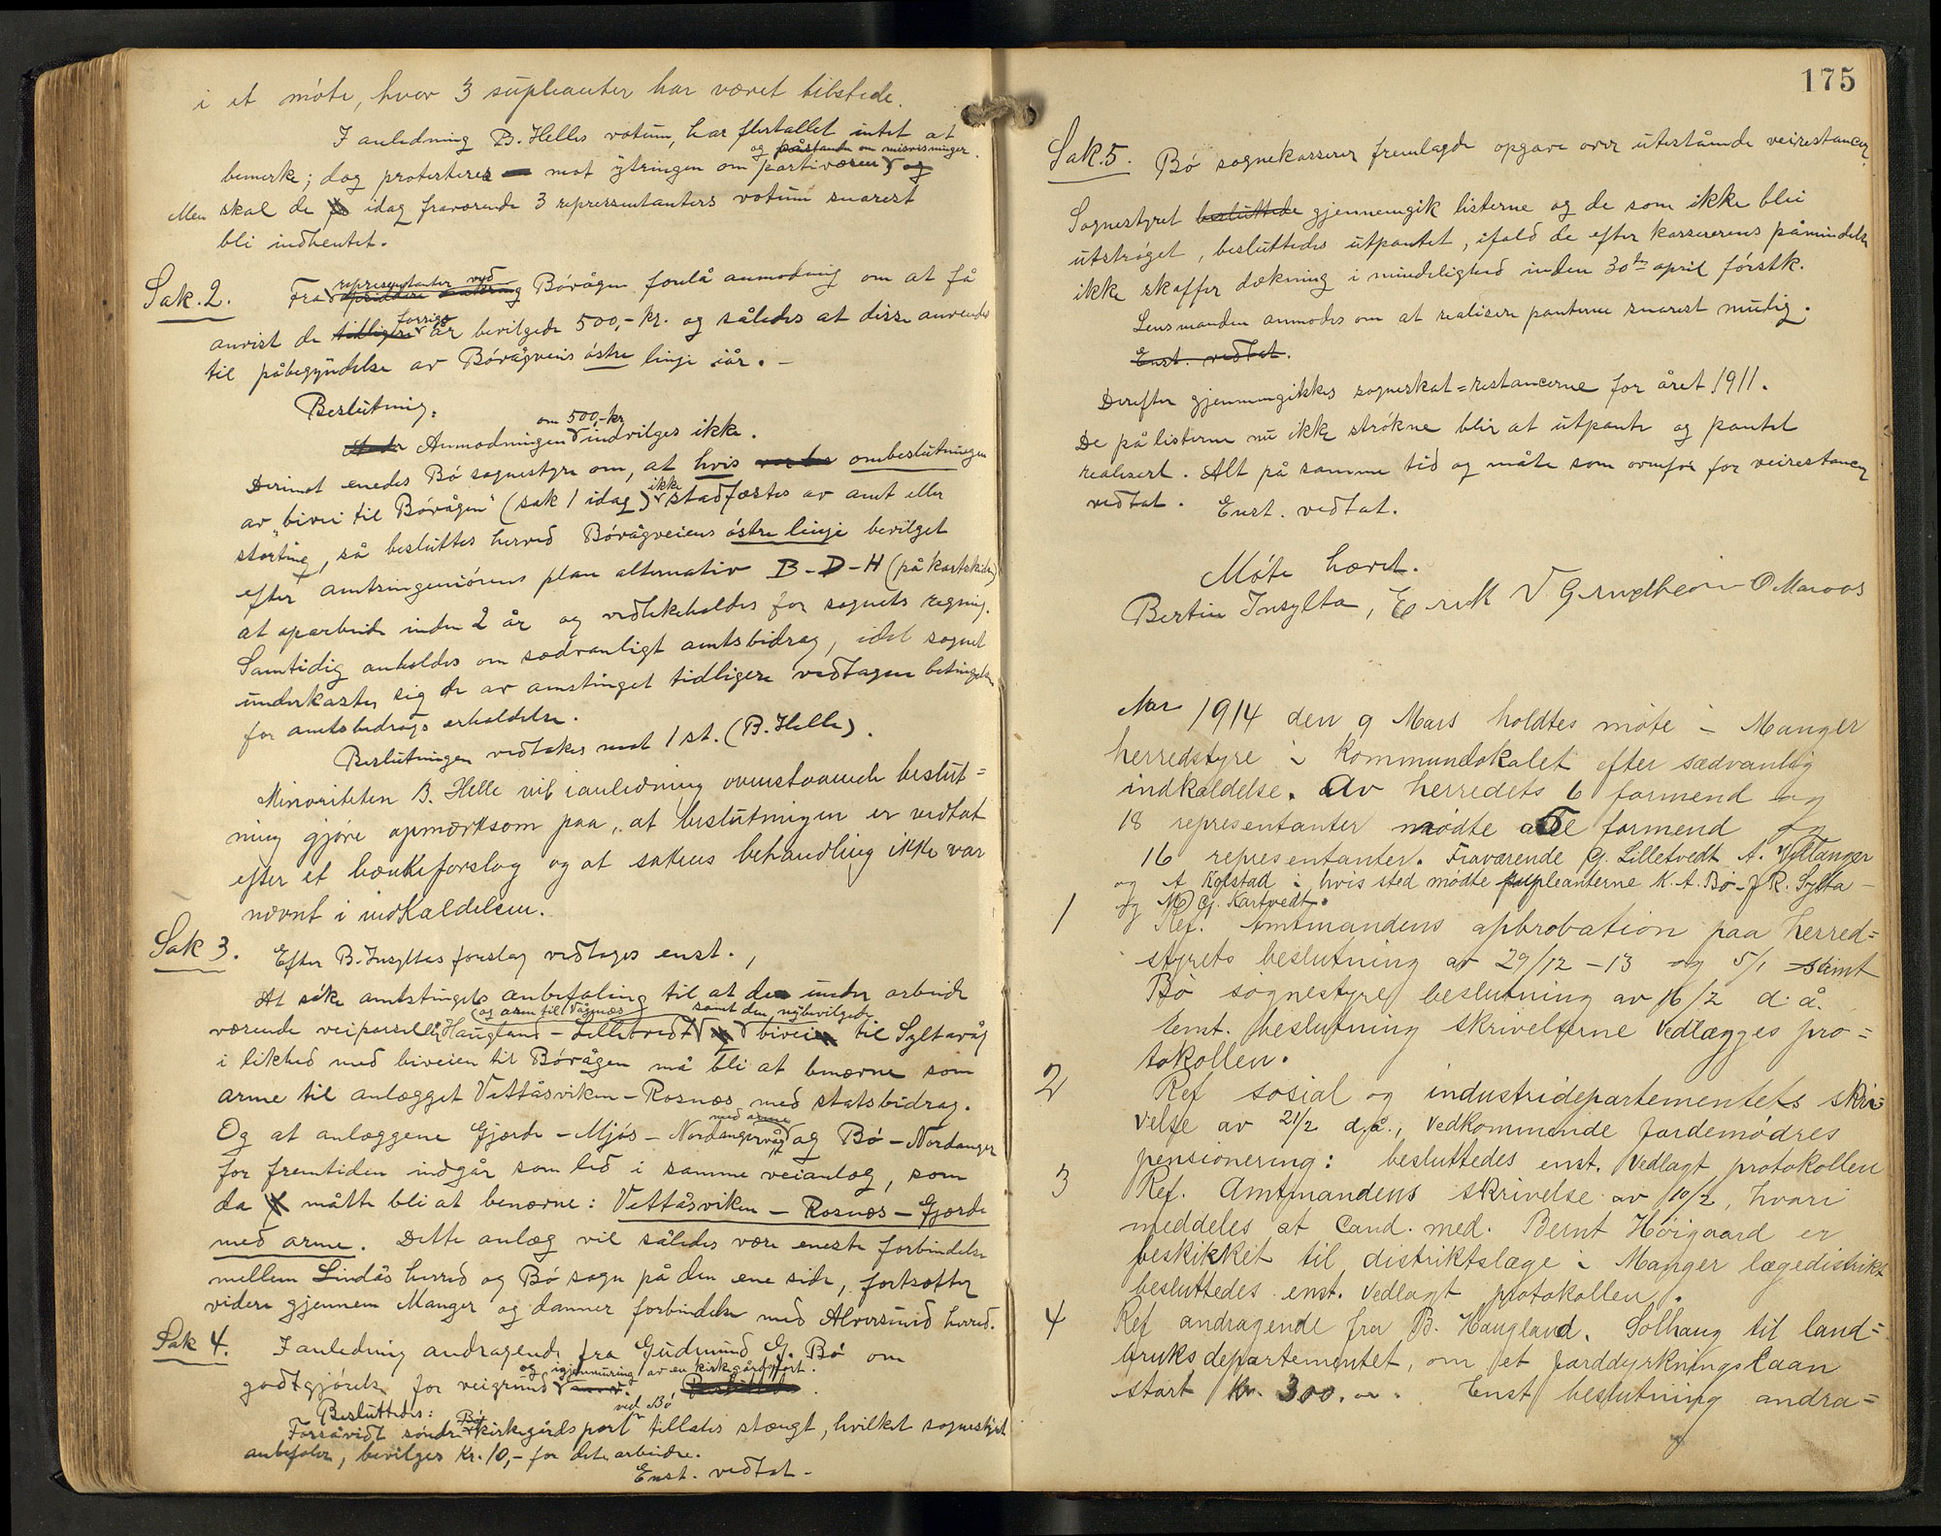 i et møte, hvor 3 supleanter har været tilstede.
I anledning B. Helles votum, har flertallet intet at
og påstanden om misvisninger.
bemerke; dog protesteres mot ytringen om partivæsen og
Men skal de idag fraværende 3 representanters votum snarest
bli indhentet.
Sak. 2.
representanter ved
Fra Børvågen forelå anmodning om at få
forrige
anvist de tidligere år bevilgede 500,- kr. og således at disse anvendes
til påbegyndelse av Børvågveiens østre linje iår. -
Beslutning:
om 500,- kr
Anmodningen indvilges ikke.
Derimot enedes Bø sognestyre om, at hvis ombeslutningen
ikke
av "bivei til Børvågen" (sak 1 idag) stadfæstes av amt eller
storting, så besluttes herved Børvågveiens østre linje bevilget
efter amtsingeniørens plan alternativ B-D-H (på kartskissen)
at oparbeide inden 2 år og vedlikeholdes for sognets regning.
Samtidig anholdes om sædvanligt amtsbidrag, idet sognet
underkaster sig de av amstinget tidligere vedtagne betingelser
for amtsbidrags erholdelse.
Beslutningen vedtakes mot 1 st. (B. Helle).
Minoriteten B. Helle vil i anledning ovenstaaende beslut=
ning gjøre opmerksom paa, at beslutningen er vedtat
efter et bænkeforslag og at sakens behandling ikke var
nævnt i indkaldelsen.
Sak 3.
Efter B. Insyltas forslag vedtages enst.,
At søke amtstingets anbefaling til at den under arbeide
og arm til Vågenes samt den nybevilgede
værende veiparsell Haugland - Lilletvedt biveien til Syltavåg
i likhed med biveien til Børvågen må bli at benævne som
arme til anlægget Vettåsviken - Rosnes med statsbidrag.
med arme
Og at anlæggene Gjerde - Mjøs - Nordangervåg og Bø - Nordanger
for fremtiden indgår som led i samme veianlæg, som
da måtte bli at benævne: Vettåsviken - Rosnes - Gjerde
med arme. Dette anlæg vil således være eneste forbindelse
mellem Lindås herred og Bø sogn på den ene side, fortsætter
videre gjennem Manger og danner forbindelse med Alversund herred.
Sak 4.
I anledning andragende fra Gudmund G. Bø om
og igjenmuring av en kirkegårdsport.
godtgjørelse for veigrund
Besluttedes:
ved Bø
Forsåvidt søndre kirkegårdsport tillates stængt, hvilket sognestyret
anbefaler, bevilges Kr. 10,- for dette arbeide.
Enst. vedtat -
175
Sak. 5. Bø sognekasserer fremlagde opgave over utestående veirestancer
Sognestyret besluttede gjennemgik listerne og de som ikke blei
utstrøget, besluttedes utpantet, ifald de efter kassererens påmindelse
ikke skaffer dækning i mindelighed inden 30te april førstk.
Lensmanden anmodes om at realisere panterne snarest mulig.
Enst. vedtat.
Derefter gjennemgikkes sogneskat=restancerne for året 1911.
De på listerne nu ikke strøkne blir at utpante og pantet
realisert. Alt på samme tid og måte som ovenfor for veirestancer
vedtat. Enst. vedtat.
Møte hævet.
Bertin Insylta, Erik
Aar 1914 den 9 Mars holdtes møte i Manger
herredstyre i kommunelokalet efter sædvanlig
indkaldelse. Av herredets 6 formend og
18 representanter mødte 5 formend og
16 representanter. Fraværende G. Lilletvedt A. Ystanger
og A Kolstad i hvis sted mødte supleanterne K. A. Bø - J R. Sylta -
og M G. Kartvedt.
1 Ref. Amtmandens apbrobation paa herred=
styrets beslutning av 29/12 -13 og 5/1 samt
Bø sognestyre beslutning av 16/2 d. å.
Enst. beslutning skrivelserne vedlægges pro=
tokollen.
2 Ref sosial og industridepartementets skri=
velse av 21/2 d.å., vedkommende jordemødres
pensionering: besluttedes enst. vedlagt protokollen
3 Ref. Amtmandens skrivelse av 10/2, hvori
meddeles at Cand. med. Bernt Høigaard er
beskikket til distriktslæge i Manger lægedistrikt
besluttedes enst. vedlagt protokollen.
4 Ref andragende fra B. Haugland. Solhaug til land=
bruksdepartementet, om et jorddyrkningslaan
stort kr. 300. Enst beslutning andra=